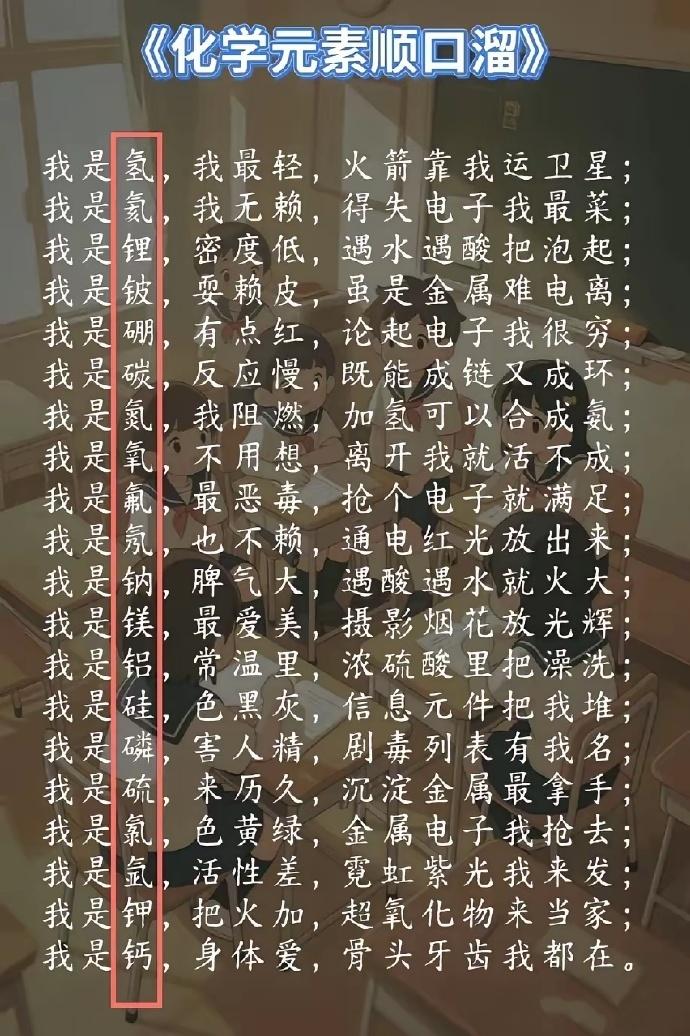 《化学元素顺口溜》
我是氢，我最轻，火箭靠我运卫星；
我是氦，我无赖，得失电子我最菜；
我是锂，密度低，遇水遇酸把泡起；
我是铍，耍赖皮，虽是金属难电离；
我是硼，有点红，论起电子我很穷；
我是碳，反应慢，既能成链又成环；
我是氮，我阻燃，加氢可以合成氨；
我是氧，不用想，离开我就活不成；
我是氟，最恶毒，抢个电子就满足；
我是氖，也不赖，通电红光放出来；
我是钠，脾气大，遇酸遇水就火大；
我是镁，最爱美，摄影烟花放光辉；
我是铝，常温里，浓硫酸里把澡洗；
我是硅，色黑灰，信息元件把我堆；
我是磷，害人精，剧毒列表有我名；
我是硫，来历久，沉淀金属最拿手；
我是氯，色黄绿，金属电子我抢去；
我是氩，活性差，霓虹紫光我来发；
我是钾，把火加，超氧化物来当家；
我是钙，身体爱，骨头牙齿我都在。